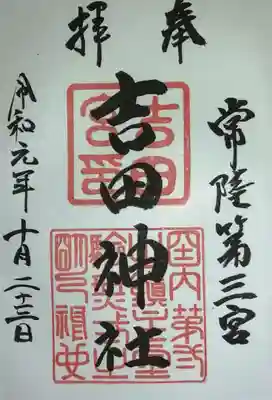 奉拝
常陸第三宮
吉田神社
令和元年十月二十三日